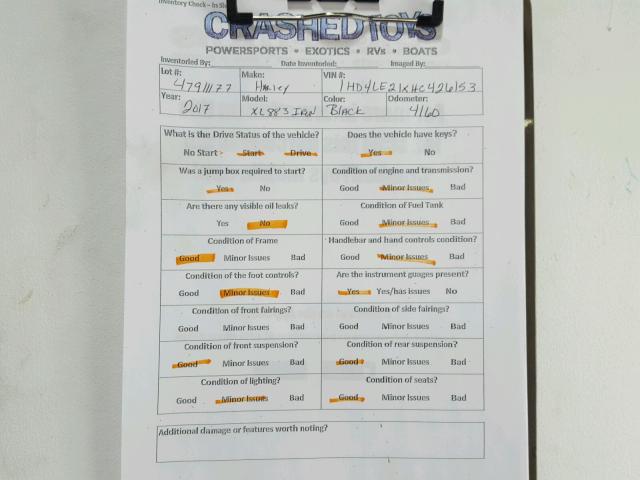 Inventory Check – In
CRASHEDTOYS
POWERSPORTS • EXOTICS • RVs • BOATS
Inventoried By: Date Inventoried: Imaged By:
Lot #: 47911177 Make: Harley VIN #: 1HD4LE21XHC426153
Year: 2017 Model: XL883 IRON Color: BLACK Odometer: 4160
What is the Drive Status of the vehicle? Does the vehicle have keys?
No Start Start Drive Yes No
Was a jump box required to start? Condition of engine and transmission?
Yes No Good Minor Issues Bad
Are there any visible oil leaks? Condition of Fuel Tank
Yes No Good Minor Issues Bad
Condition of Frame Handlebar and hand controls condition?
Good Minor Issues Bad Good Minor Issues Bad
Condition of the foot controls? Are the instrument guages present?
Good Minor Issues Bad Yes Yes/has issues No
Condition of front fairings? Condition of side fairings?
Good Minor Issues Bad Good Minor Issues Bad
Condition of front suspension? Condition of rear suspension?
Good Minor Issues Bad Good Minor Issues Bad
Condition of lighting? Condition of seats?
Good Minor Issues Bad Good Minor Issues Bad
Additional damage or features worth noting?